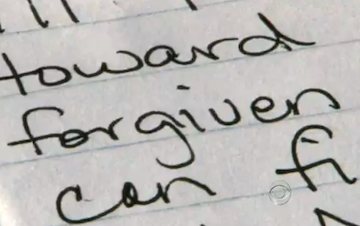 toward
forgiven
can fi